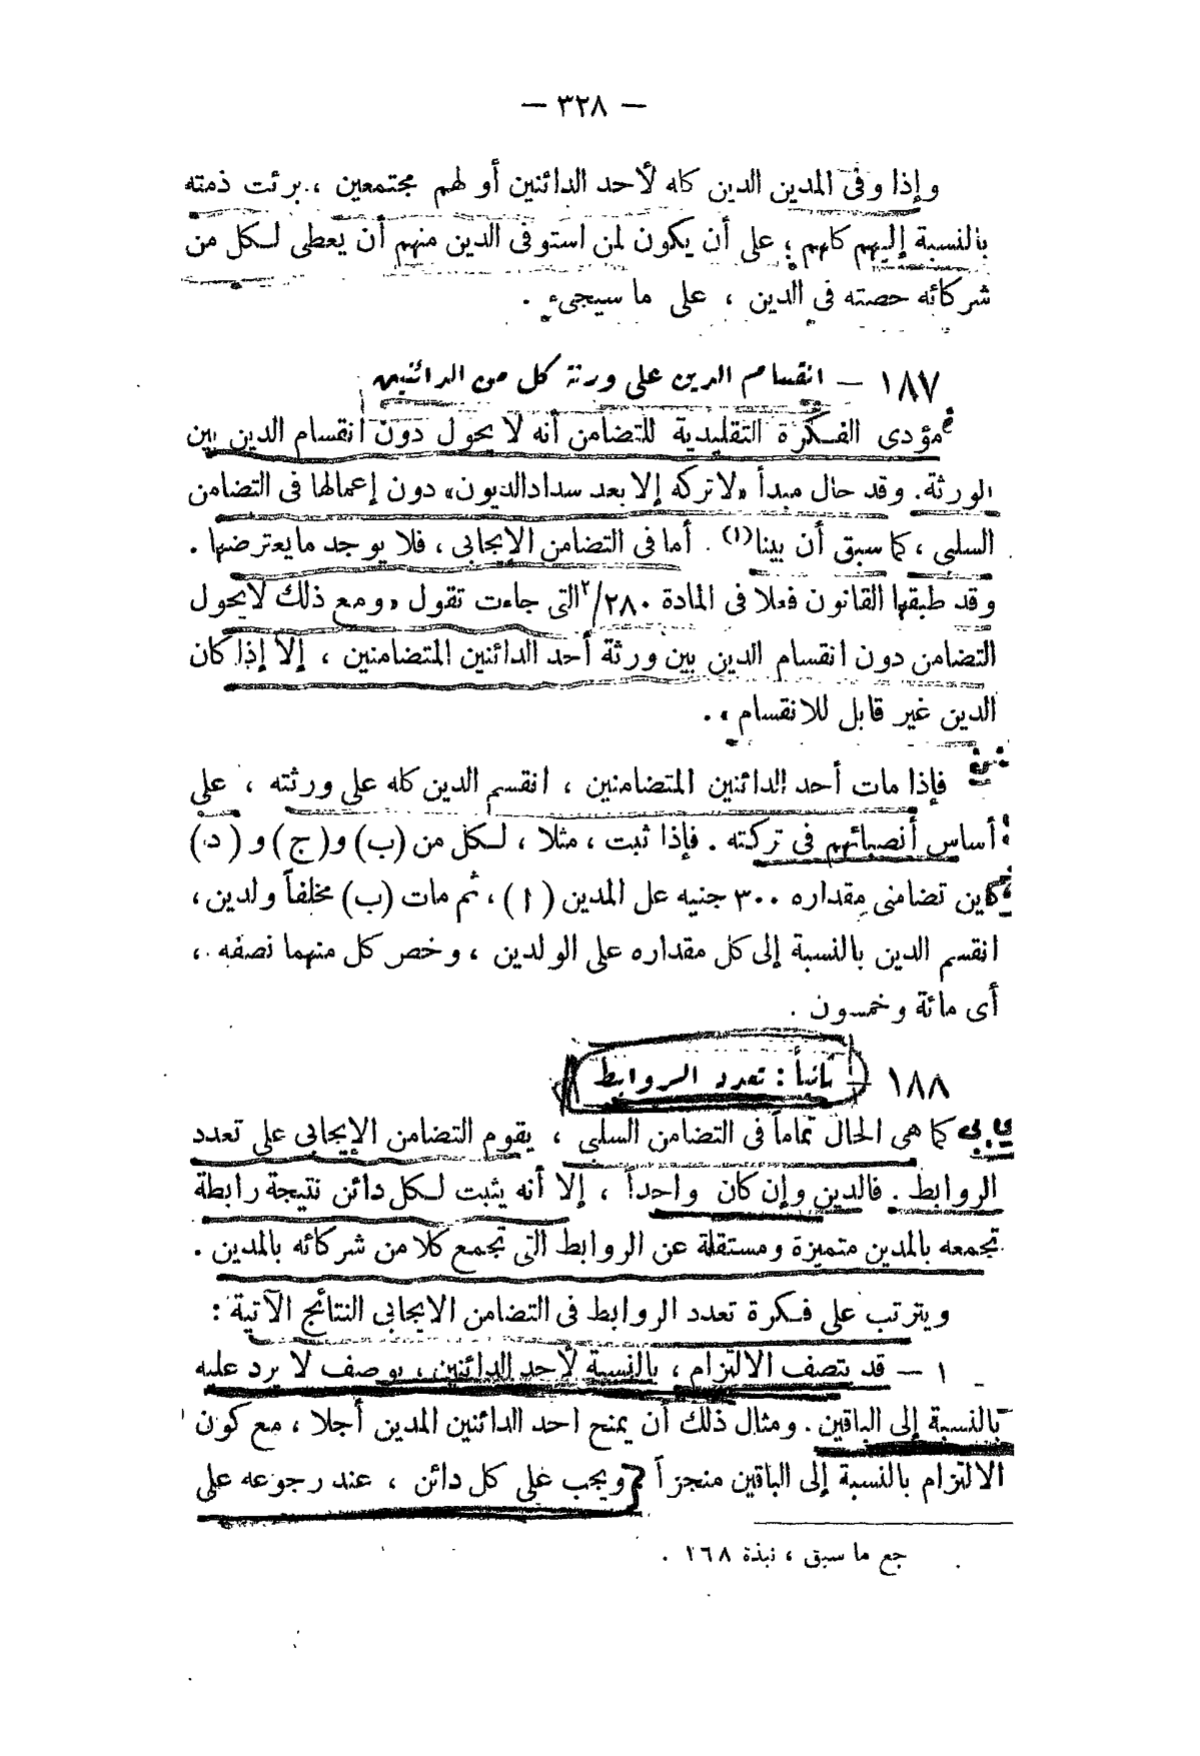 — ٣٢٨ —
وإذا وفى المدين الدين كله لأحد الدائنين أو لهم مجتمعين ، برئت ذمته
بالنسبة إليهم كلهم ؛ على أن يكون لمن استوفى الدين منهم أن يعطى لكل من
شركائه حصته فى الدين ، على ما سيجىء .
١٨٧ — انقسام الدين على ورثة كل من الدائنين
مؤدى الفكرة التقليدية للتضامن أنه لا يحول دون انقسام الدين بين
الورثة. وقد حال مبدأ «لا تركه إلا بعد سداد الديون» دون إعمالها فى التضامن
السلبى ، كما سبق أن بينا(١) . أما فى التضامن الإيجابى ، فلا يوجد ما يعترضها .
وقد طبقها القانون فعلا فى المادة ٢/٢٨٠ التى جاءت تقول «ومع ذلك لا يحول
التضامن دون انقسام الدين بين ورثة أحد الدائنين المتضامنين ، إلا إذا كان
الدين غير قابل للانقسام » .
فإذا مات أحد الدائنين المتضامنين ، انقسم الدين كله على ورثته ، على
أساس أنصبائهم فى تركته . فإذا ثبت ، مثلا ، لكل من (ب) و(ج) و (د)
تضامنى مقداره ٣٠٠ جنيه على المدين (ا) ، ثم مات (ب) مخلفاً ولدين ،
انقسم الدين بالنسبة إلى كل مقداره على الولدين ، وخص كل منهما نصفه ،
أى مائة وخمسون .
١٨٨ — ثانياً : تعدد الروابط
كما هى الحال تماماً فى التضامن السلبى ، يقوم التضامن الإيجابى على تعدد
الروابط . فالدين وإن كان واحداً ، إلا أنه يثبت لكل دائن نتيجة رابطة
تجمعه بالمدين متميزة ومستقلة عن الروابط التى تجمع كلا من شركائه بالمدين .
ويترتب على فكرة تعدد الروابط فى التضامن الايجابى النتائج الآتية :
١ — قد يتصف الالتزام ، بالنسبة لأحد الدائنين ، بوصف لا يرد عليه
بالنسبة إلى الباقين . ومثال ذلك أن يمنح احد الدائنين المدين أجلا ، مع كون
الالتزام بالنسبة إلى الباقين منجزاً . ويجب على كل دائن ، عند رجوعه على
جع ما سبق ، نبذة ١٦٨ .